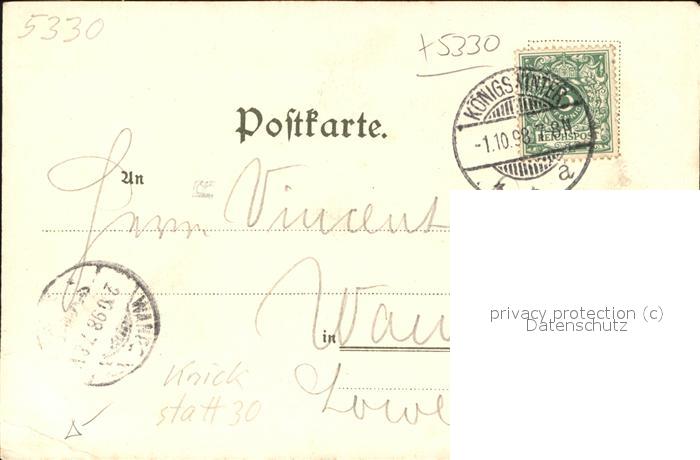 5330
+5330
KÖNIGSWINTER
-1.10.98
a
REICHSPOST
Postkarte.
An
Herrn Vincent
in Wan
Lowe
2.10.98.7
WAND
Knick
statt 30
privacy protection (c)
Datenschutz